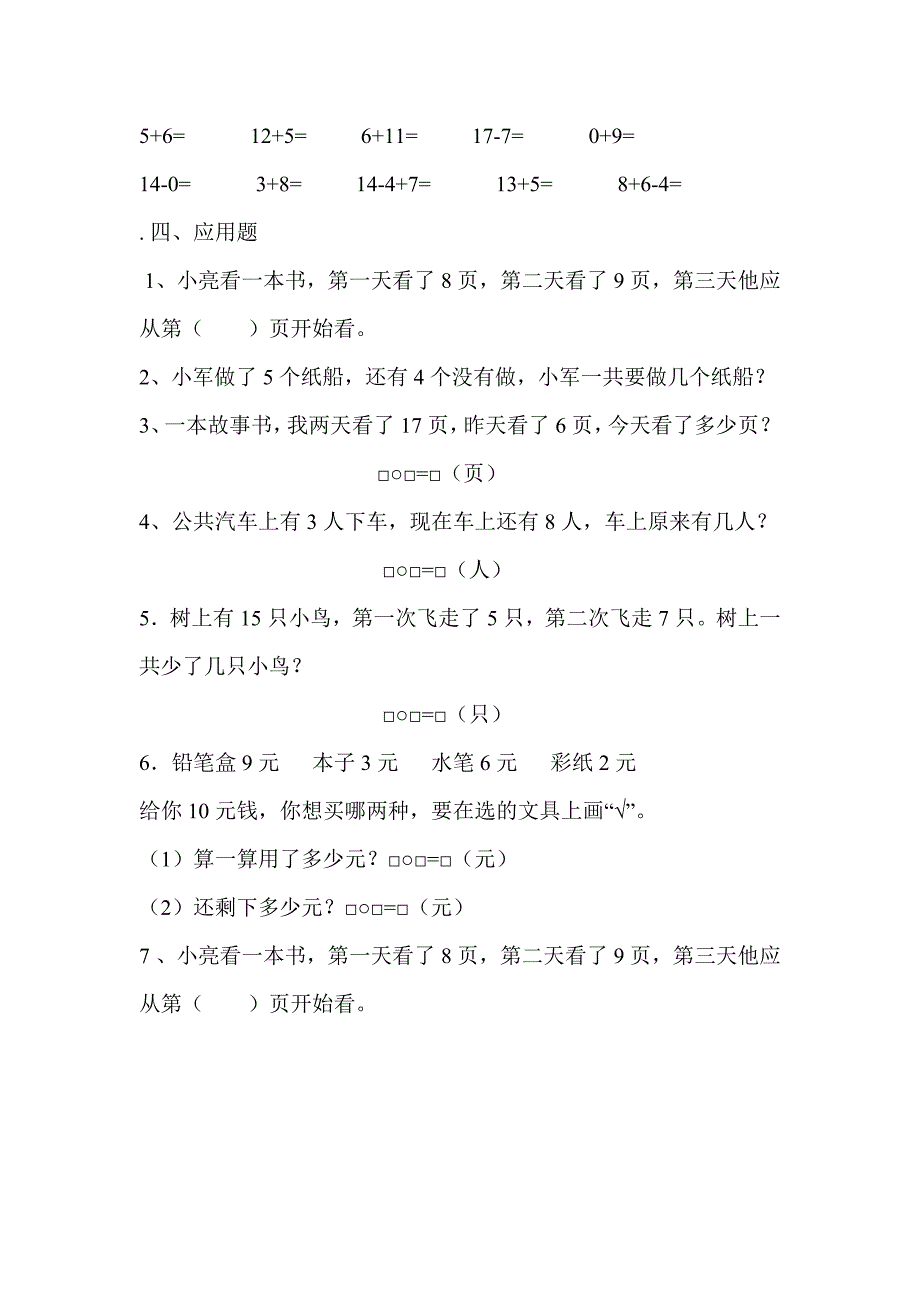 5+6= 12+5= 6+11= 17-7= 0+9=
14-0= 3+8= 14-4+7= 13+5= 8+6-4=
. 四、应用题
1、小亮看一本书，第一天看了 8 页，第二天看了 9 页，第三天他应
从第（  ）页开始看。
2、小军做了 5 个纸船，还有 4 个没有做，小军一共要做几个纸船？
3、一本故事书，我两天看了 17 页，昨天看了 6 页，今天看了多少页？
□○□=□（页）
4、公共汽车上有 3 人下车，现在车上还有 8 人，车上原来有几人？
□○□=□（人）
5．树上有 15 只小鸟，第一次飞走了 5 只，第二次飞走 7 只。树上一
共少了几只小鸟？
□○□=□（只）
6．铅笔盒 9 元 本子 3 元 水笔 6 元 彩纸 2 元
给你 10 元钱，你想买哪两种，要在选的文具上画“√”。
（1）算一算用了多少元？□○□=□（元）
（2）还剩下多少元？□○□=□（元）
7 、小亮看一本书，第一天看了 8 页，第二天看了 9 页，第三天他应
从第（  ）页开始看。